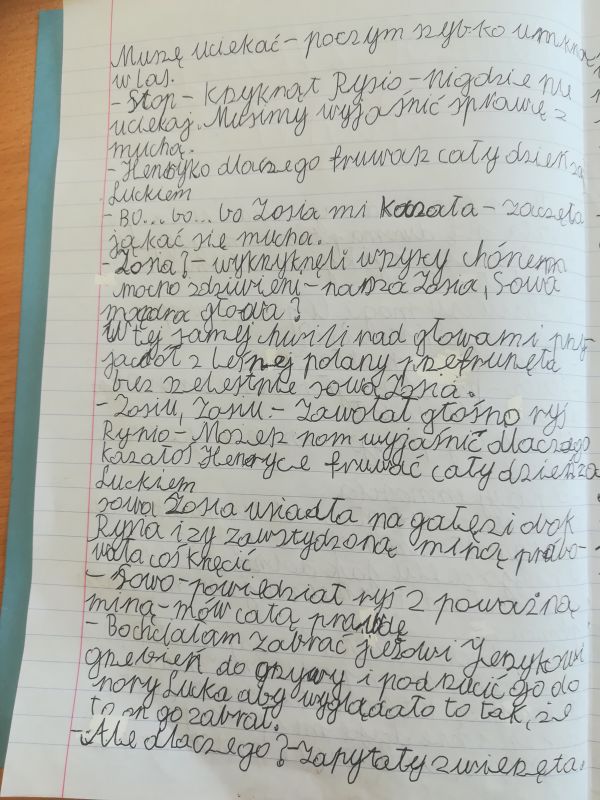 Muszę uciekać – poczym szybko umknął
w las.
- Stop – krzyknął Rysio – nigdzie nie
uciekaj. Musimy wyjaśnić sprawę z
muchą.
- Henryko dlaczego fruwasz cały dzień za
Luckiem
- Bo... bo... bo Zosia mi kazała – zaczęła
jąkać się mucha.
- Zosia? – wykrzyknęli wszyscy chórem
mocno zdziwieni – nasza Zosia, Sowa
mądra głowa?
W tej samej chwili nad głowami przy-
jaciół z Leśnej polany przefrunęła
bez szelestnie sowa Zosia.
- Zosiu, Zosiu – Zawołał głośno ryś
Rysio – Możesz nam wyjaśnić dlaczego
kazałaś Henryce fruwać cały dzień za
Luckiem
sowa Zosia usiadła na gałęzi obok
Rysia i zy zawstydzoną miną próbo-
wała coś kręcić
- Sowo – powiedział ryś z poważną
miną – mów całą prawdę
- Bo chciałam zabrać jeżowi Jerzykowi
grzebień do grzywy i podrzucić go do
nory Luka aby wyglądało to tak, że
to on go zabrał.
- Ale dlaczego? – Zapytały zwierzęta.